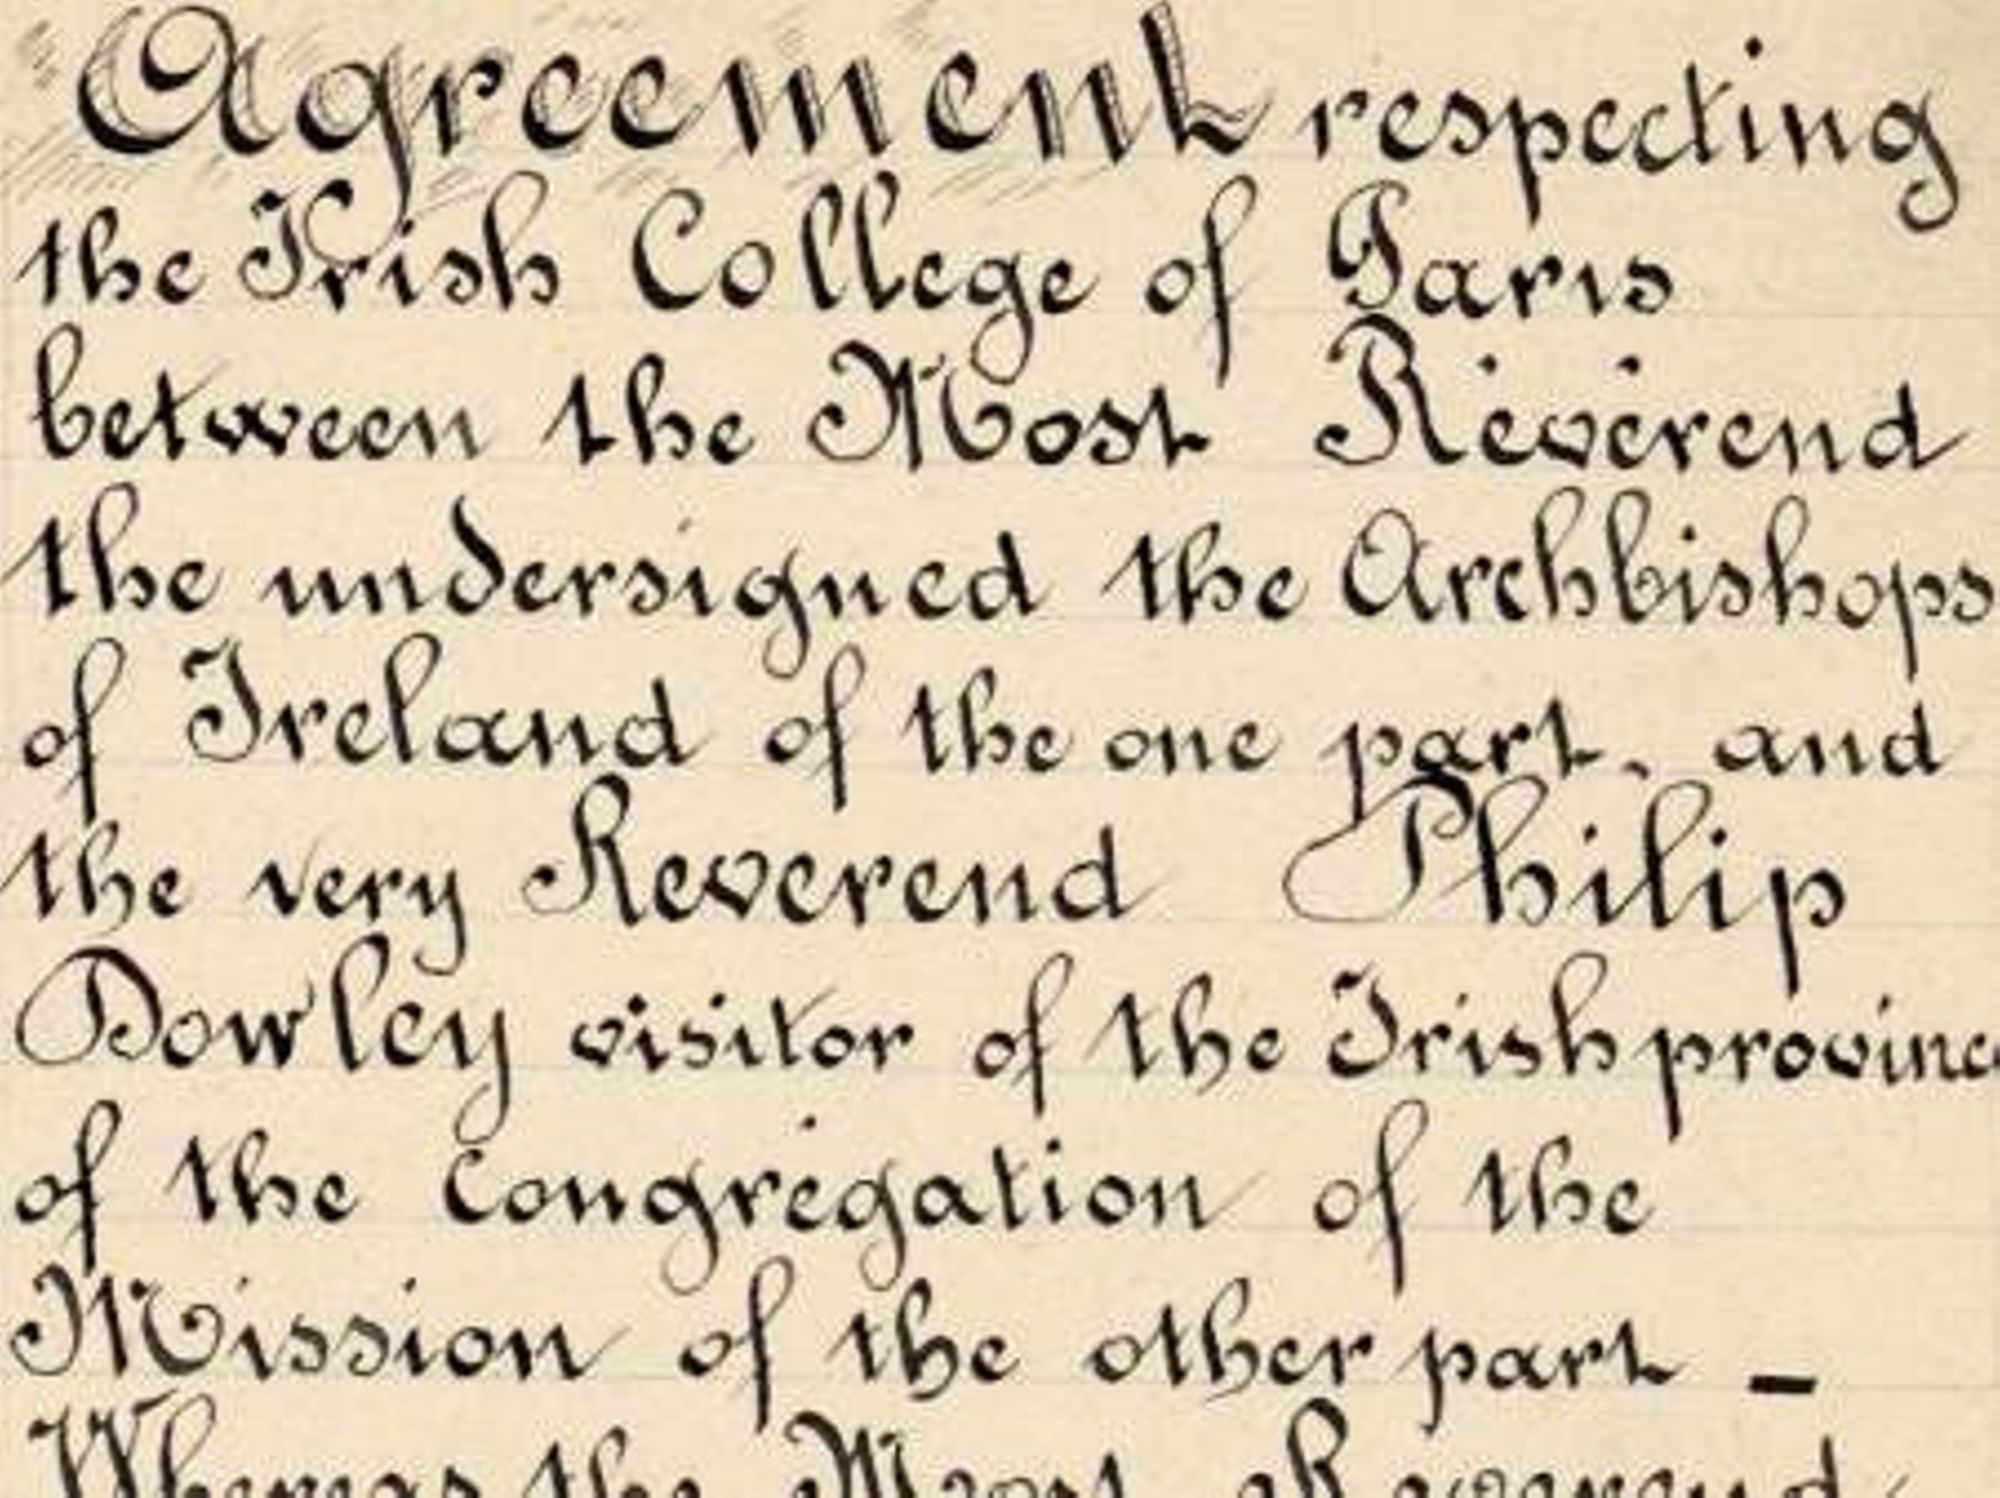 Agreement respecting
the Irish College of Paris
between the Most Reverend
the undersigned the Archbishops
of Ireland of the one part, and
the very Reverend Philip
Dowley visitor of the Irish provinc
of the Congregation of the
Mission of the other part –
Whereas the Most Reverend